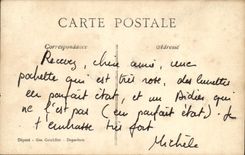 CARTE POSTALE
Correspondance
Adresse
Recevez, chère amie, une
pochette qui est très rose, des lunettes
en parfait état, et un Didier qui
ne l'est pas (en parfait état). Je
t'embrasse très fort
Michèle
Déposé